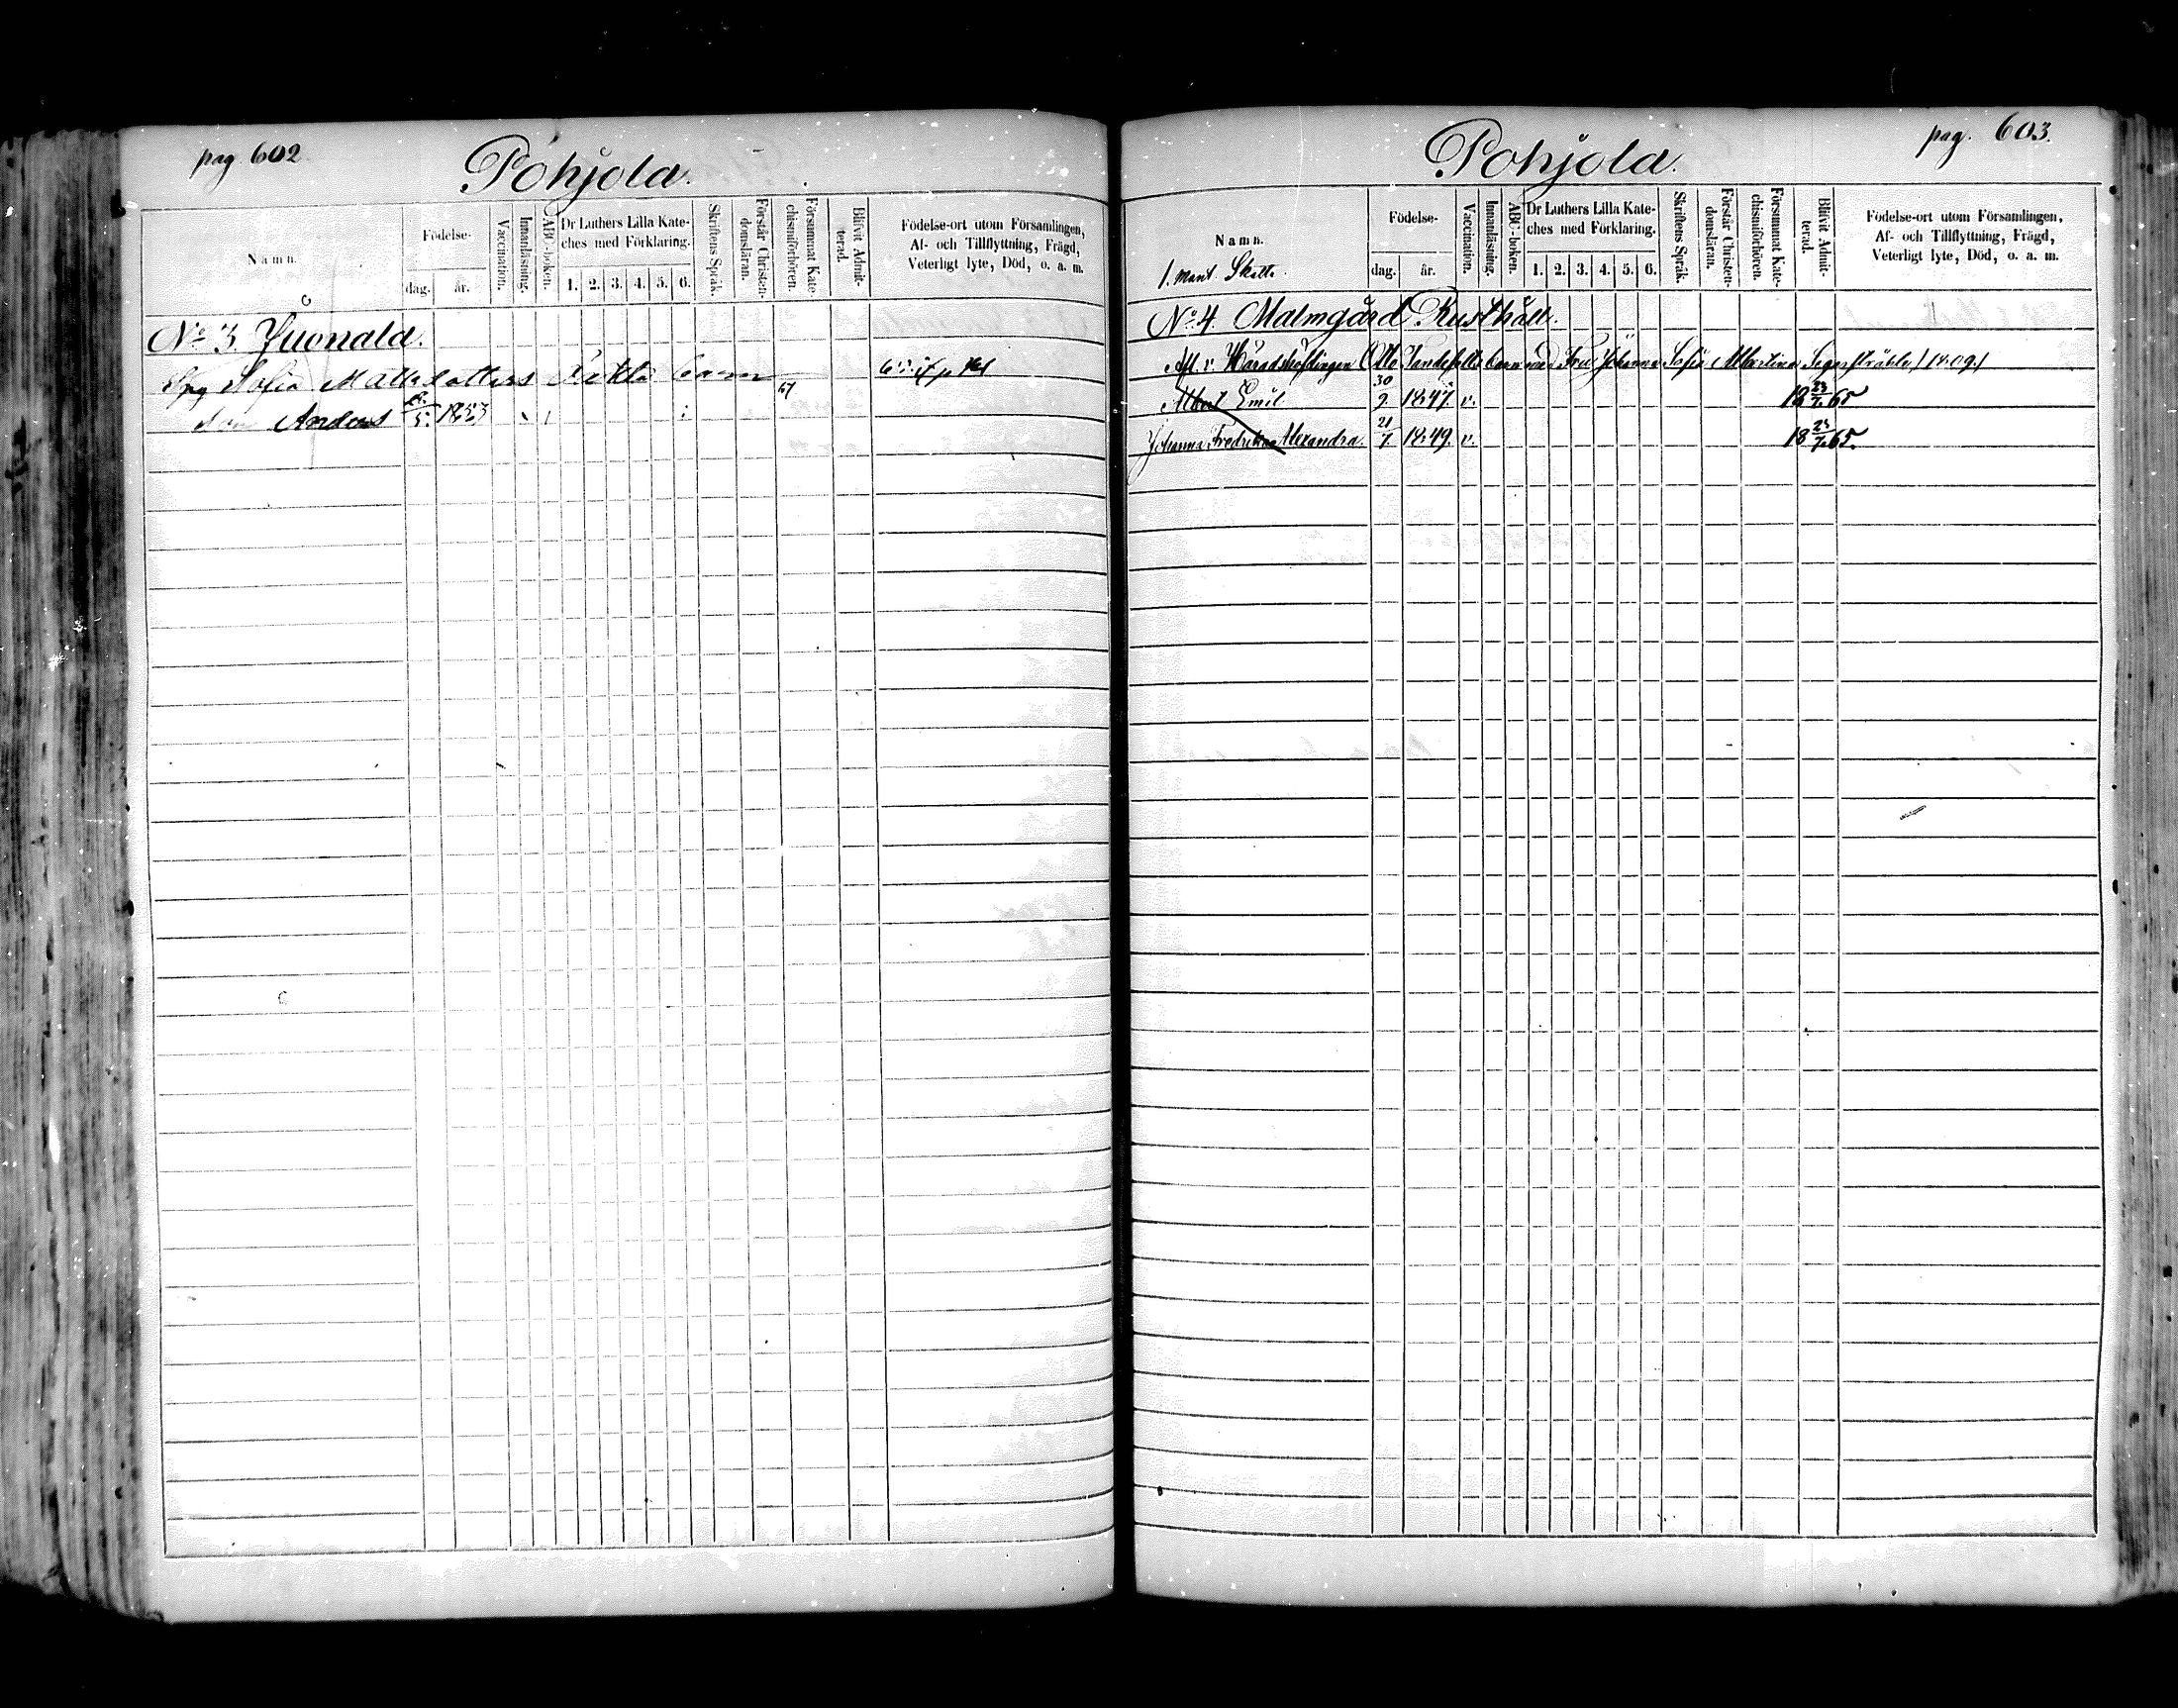 pag. 602
Pohjola.
Namn.
Födelse-
dag.
år.
Vaccination.
Innanläsning.
ABC-boken.
Dr Luthers Lilla Kate-
ches med Förklaring.
1. 2. 3. 4. 5. 6.
Skriftens Språk.
Förstår Christen-
domsläran.
Försummat Kate-
chismiförhören.
Blifvit Admit-
terad.
Födelse-ort utom Församlingen,
Af- och Tillflyttning, Frägd,
Veterligt lyte, Död, o. a. m.
No 3. Juonala.
Sofia Mattsdotters barn
son Anders 5. 1853
pag. 603.
Pohjola.
Namn.
1. mant. Skatte.
Födelse-
dag.
år.
Vaccination.
Innanläsning.
ABC-boken.
Dr Luthers Lilla Kate-
ches med Förklaring.
1. 2. 3. 4. 5. 6.
Skriftens Språk.
Förstår Christen-
domsläran.
Försummat Kate-
chismiförhören.
Blifvit Admit-
terad.
Födelse-ort utom Församlingen,
Af- och Tillflyttning, Frägd,
Veterligt lyte, Död, o. a. m.
No. 4. Malmgård Rusthåll.
Afl. v. Häradshöfdingen Otto barn med Fru Johanna Sofia Martina Segerstråle
Albert Emil 30/9 1847. v. 18 23/7 65
Johanna Fredrika Alexandra. 21/7 1849. v. 18 23/7 65.